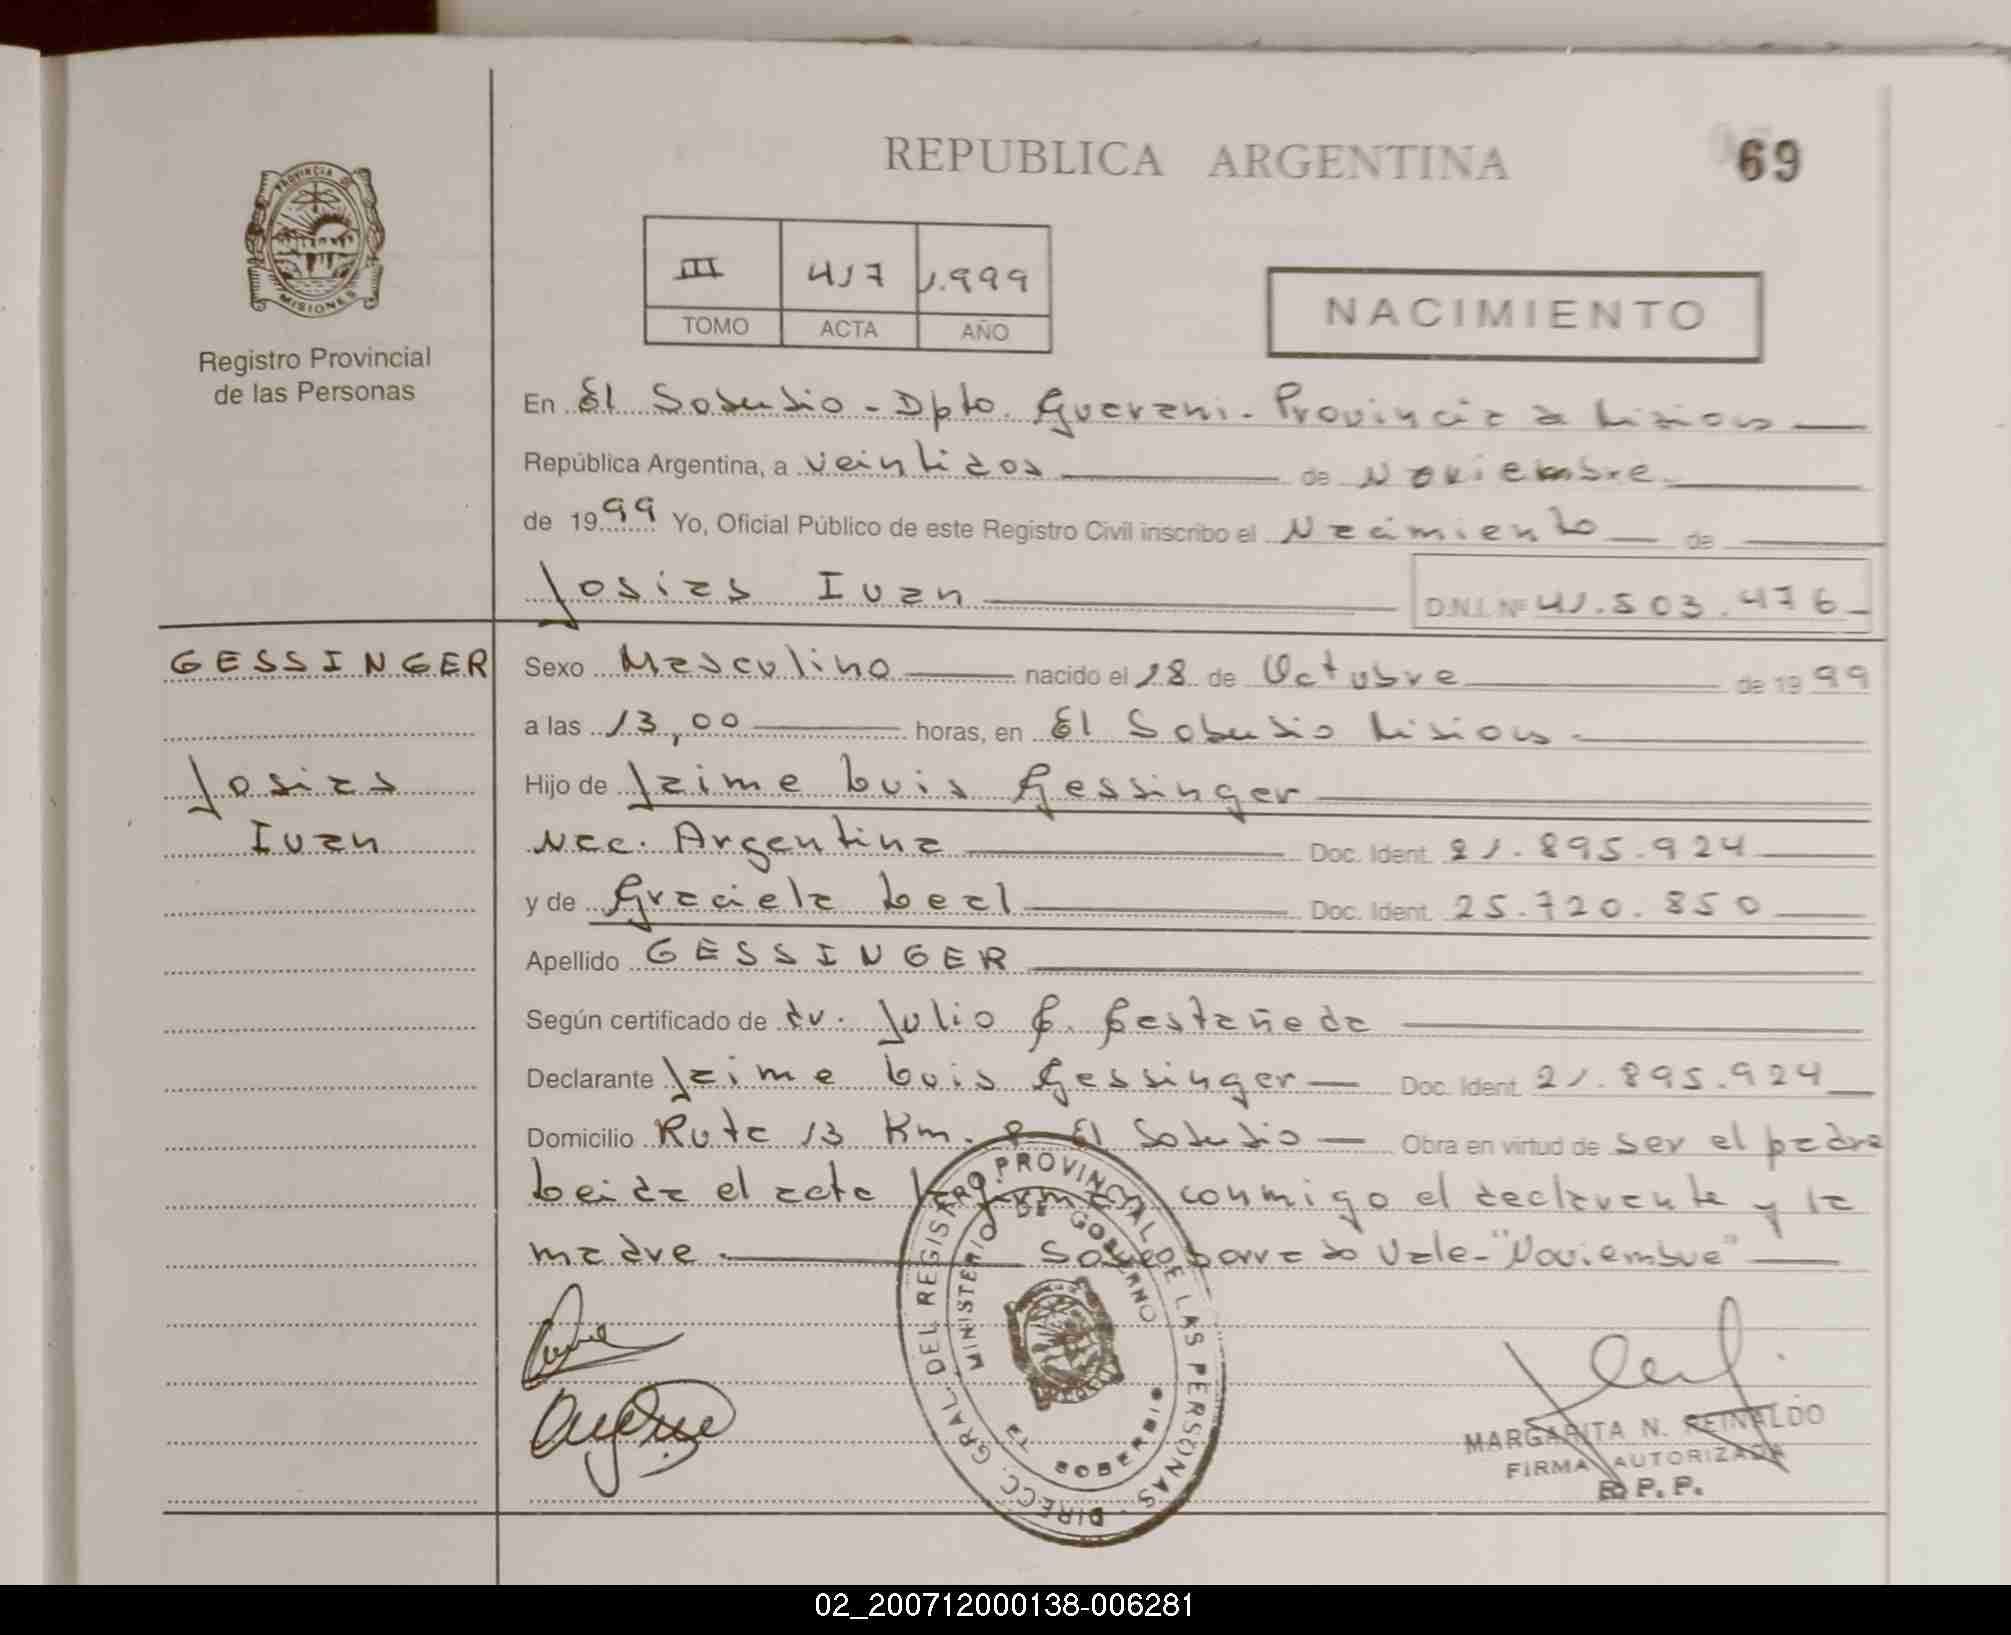 REPUBLICA ARGENTINA
69
PROVINCIA DE
MISIONES
Registro Provincial
de las Personas
III 417 1.999
TOMO ACTA AÑO
NACIMIENTO
En El Soberbio - Dpto. Guarani - Provincia de Misiones
República Argentina, a veintidos de Noviembre
de 1999 Yo, Oficial Público de este Registro Civil inscribo el Nacimiento de
Josias Ivan D.N.I. Nº 41.503.476
GESSINGER
Josias
Ivan
Sexo Masculino nacido el 18 de Octubre de 1999
a las 13,00 horas, en El Soberbio Misiones
Hijo de Jaime Luis Gessinger
Nac. Argentina Doc. Ident. 21.895.924
y de Graciela Leal Doc. Ident. 25.720.850
Apellido GESSINGER
Según certificado de dr. Julio C. Castañeda
Declarante Jaime Luis Gessinger Doc. Ident. 21.895.924
Domicilio Ruta 13 Km. El Soberbio Obra en virtud de ser el padre
Leida el acta la firman conmigo el declarante y la
madre. Sobre borrado Vale - "Noviembre"
DIRECC. GRAL. DEL REGISTRO PROVINCIAL DE LAS PERSONAS
MINISTERIO DE GOBIERNO
SOBERBIO
MARGARITA N. REINALDO
FIRMA AUTORIZADA
R.P.P.
02_200712000138-006281